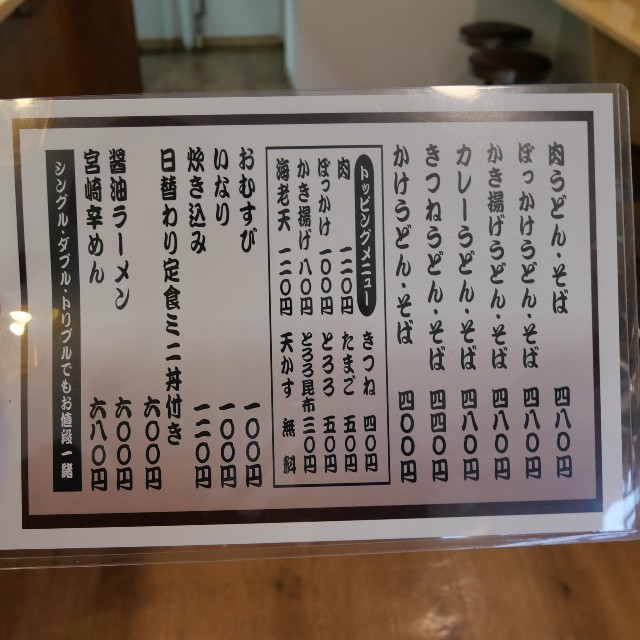 肉うどん・そば 四八〇円
ぼっかけうどん・そば 四八〇円
かき揚げうどん・そば 四八〇円
カレーうどん・そば 四八〇円
きつねうどん・そば 四四〇円
かけうどん・そば 四〇〇円
トッピングメニュー
肉 一二〇円
ぼっかけ 一〇〇円
かき揚げ 八〇円
海老天 一二〇円
きつね 四〇円
たまご 五〇円
とろろ 五〇円
とろろ昆布 三〇円
天かす 無料
おむすび 一〇〇円
いなり 一〇〇円
炊き込み 一二〇円
日替わり定食ミニ丼付き 六〇〇円
醤油ラーメン 六〇〇円
宮崎辛めん 六八〇円
シングル・ダブル・トリプルでもお値段一緒